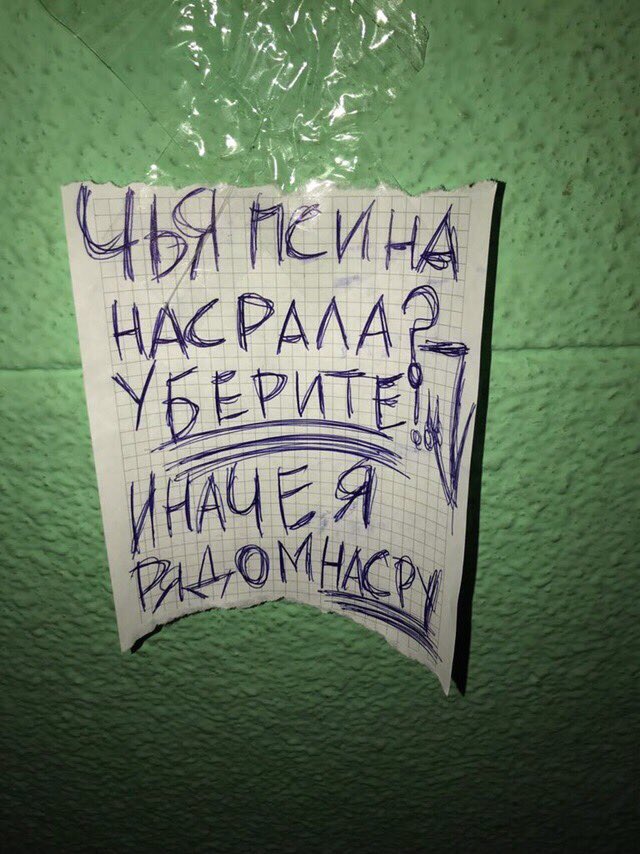 ЧЬЯ ПСИНА
НАСРАЛА?
УБЕРИТЕ!
ИНАЧЕ Я
РЯДОМ НАСРУ